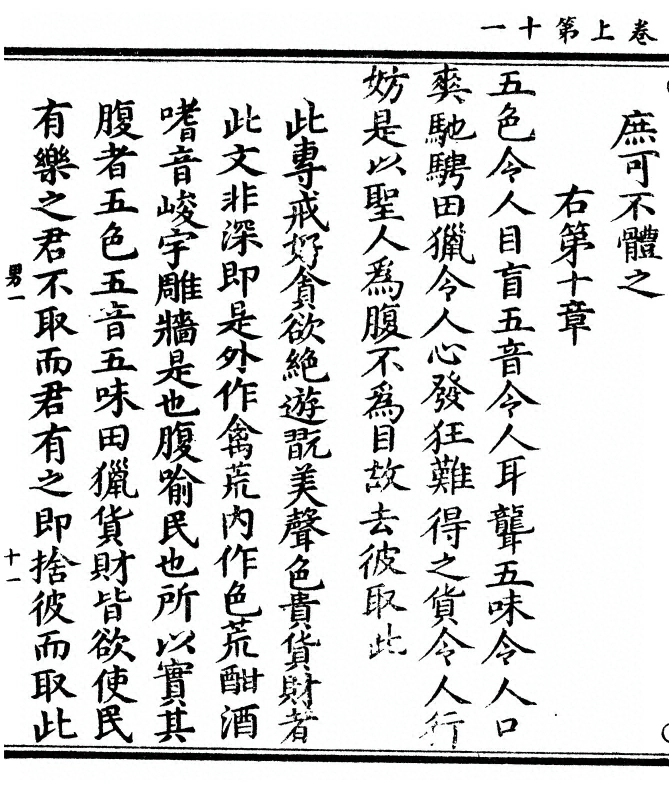 卷上第十一
庶可不體之
右第十章
五色令人目盲五音令人耳聾五味令人口
爽馳騁田獵令人心發狂難得之貨令人行
妨是以聖人爲腹不爲目故去彼取此
此專戒好貪欲絶遊翫美聲色貴貨財者
此文非深即是外作禽荒内作色荒酣酒
嗜音峻宇雕牆是也腹喻民也所以實其
腹者五色五音五味田獵貨財皆欲使民
有樂之君不取而君有之即捨彼而取此
男一
十一